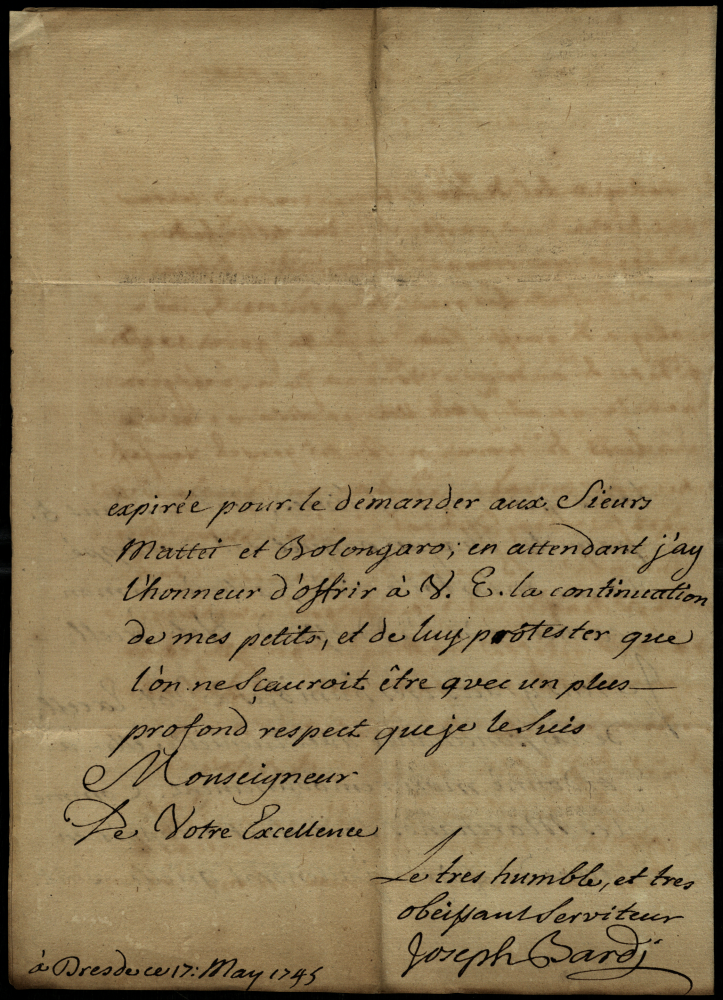 expirée pour le démander aux Sieurs
Mattei et Bolongaro; en attendant j'ay
l'honneur d'offrir à V. E. la continuation
de mes petits, et de luy protester que
l'on ne sçauroit être avec un plus
profond respect que je le suis
Monseigneur
De Votre Excellence
Le tres humble, et tres
obeissant Serviteur
Joseph Bardj
à Dresde ce 17: May 1745